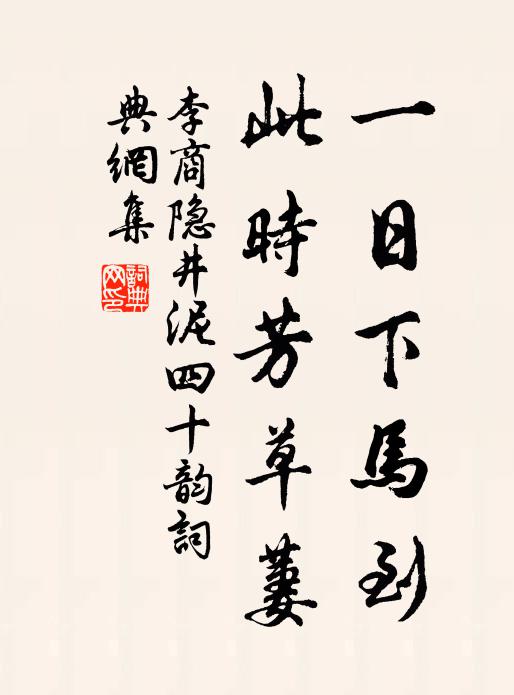 一日下馬到
此時芳草萋
李商隐井泥四十韵詞
典網集
詞典
网印